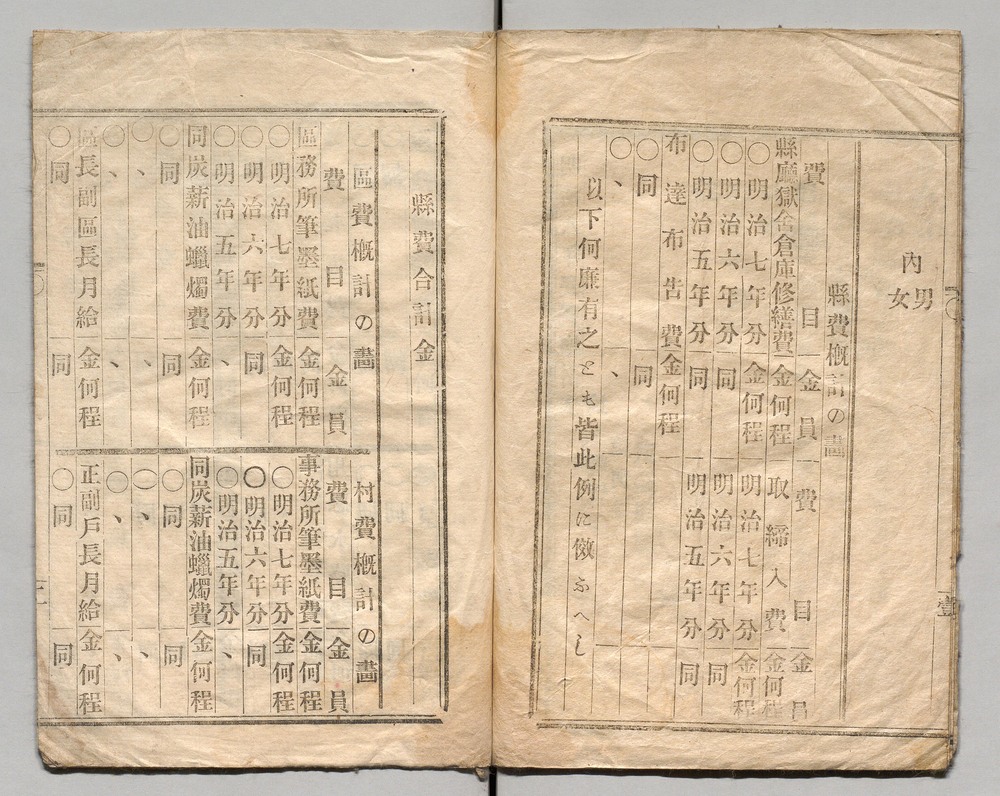 內 男
女
縣費概計の畵
費目 金員 費目 金員
縣廳獄舍倉庫修繕費 金何程 取締入費 金何程
〇明治七年分 金何程 明治七年分 金何程
〇明治六年分 同 明治六年分 同
〇明治五年分 同 明治五年分 同
布達布告費 金何程
〇同 同
〇、 、
以下何廉有之とも皆此例に傚ふへし
縣費合計金
區費概計の畵
費目 金員
區務所筆墨紙費 金何程
〇明治七年分 金何程
〇明治六年分 同
〇明治五年分 、
同炭薪油蠟燭費 金何程
〇同 同
〇、 、
〇、 、
區長副區長月給 金何程
〇同 同
村費概計の畵
費目 金員
事務所筆墨紙費 金何程
〇明治七年分 金何程
〇明治六年分 同
〇明治五年分 、
同炭薪油蠟燭費 金何程
〇同 同
〇、 、
〇、 、
正副戶長月給 金何程
〇同 同
壹